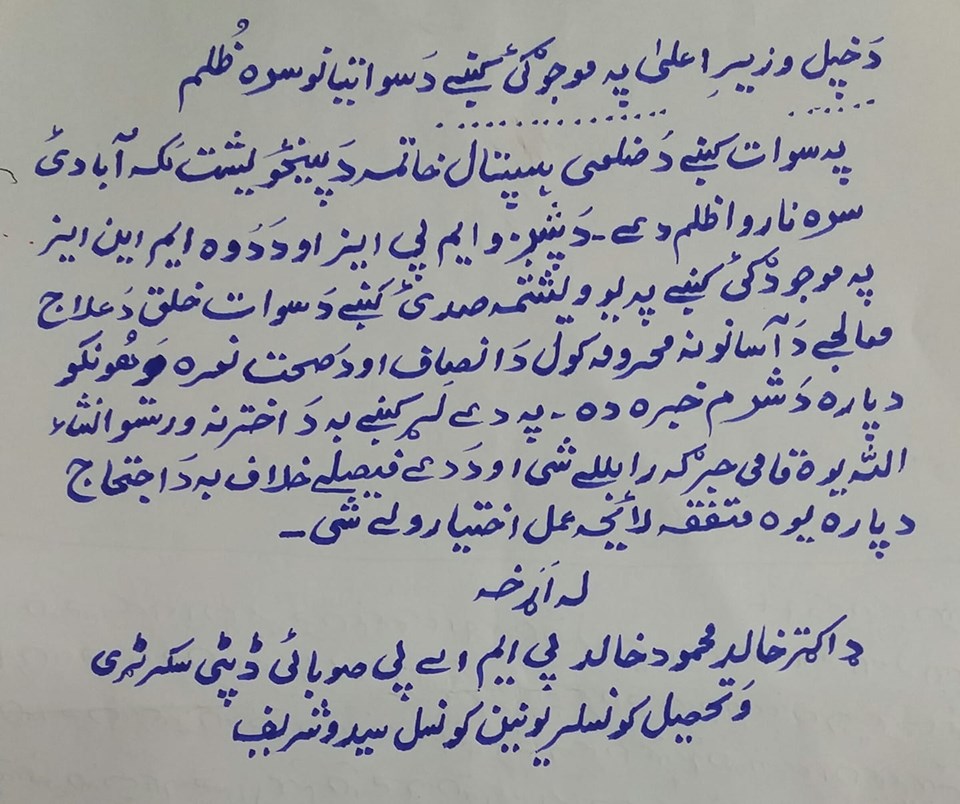 دَ خپل وزیرِ اعلیٰ په موجودګئ کښے دَ سواتیانو سره ظُلم
په سوات کښے دَ ضلعی هسپتال خاتمه دَ پینځویشت لکه آبادئ
سره ناروا ظلم دے ۔ دَ شپږو ایم پی ایز او دَ دَوه ایم این ایز
په موجودګئ کښے په یو ویشتمه صدئ کښے دَ سوات خلق دَ علاج
معالجے دَ آسانونه محرومه کول دَ انصاف او دَ صحت نعره وهونکو
دپاره دَ شرم خبره ده ۔ په دے لړ کښے به دَ اختر نه ورستو انشاء
اللّٰه یوه قامی جرګه رابللے شی او دَ دے فیصلے خلاف به دَ احتجاج
دپاره یوه متفقه لائحه عمل اختیارولے شی ۔
له اَړخه
ډاکټر خالد محمود خالد پی ایم اے پی صوبائی ڈپٹی سکرٹری
وَ تحصیل کونسلر یونین کونسل سیدو شریف